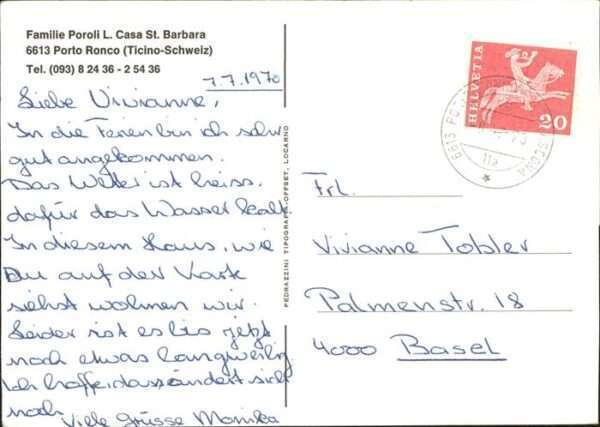 Familie Poroli L. Casa St. Barbara
6613 Porto Ronco (Ticino-Schweiz)
Tel. (093) 8 24 36 - 2 54 36
7.7.1970
Liebe Vivianne,
In die Ferien bin ich sehr
gut angekommen.
Das Wetter ist heiss,
dafür das Wasser kalt.
In diesem Haus, wie
Du auf der Karte
siehst wohnen wir.
Leider ist es bis jetzt
noch etwas langweilig
Ich hoffe, dass ändert sich
noch
Viele Grüsse Monika
PEDRAZZINI TIPOGRAFIA-OFFSET, LOCARNO
HELVETIA
20
6613 PO
SCONA
Frl.
Vivianne Tobler
Palmenstr. 18
4000 Basel